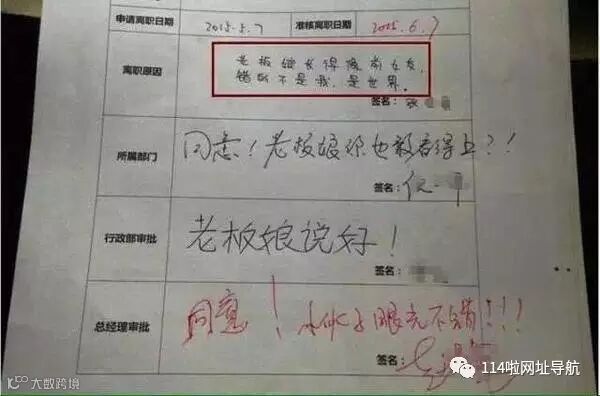 申请离职日期 2015.5.7 准核离职日期 2015.6.7
离职原因
老板娘长得像前女友,
错的不是我,是世界。
签名:张
所属部门
同意!老板娘你也敢看得上?!
签名:
行政部审批
老板娘说好!
签名:
总经理审批
同意!小伙子眼光不错!!!
签名:
大数跨境
114啦网址导航